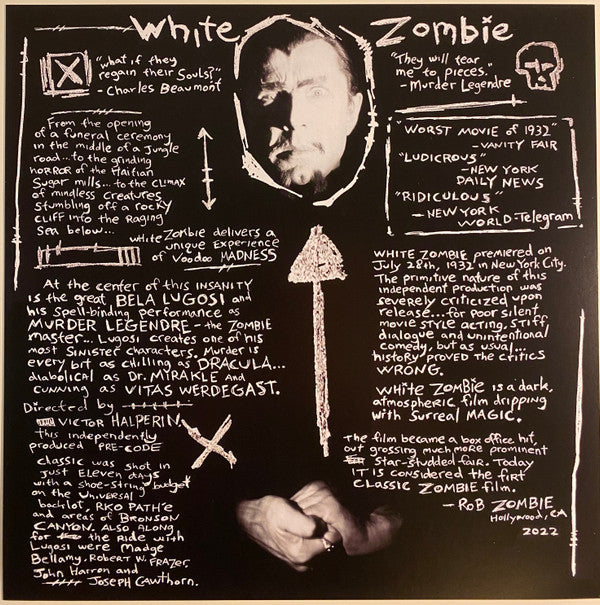 White Zombie
"what if they
regain their Souls?"
- Charles Beaumont
From the opening
of a funeral ceremony
in the middle of a Jungle
road... to the grinding
HORROR of the Haitian
Sugar mills... to the CLIMAX
of mindless creatures
Stumbling off a rocky
CLIFF into the Raging
Sea below...
white Zombie delivers a
unique Experience
of Voodoo MADNESS
At the center of this INSANITY
is the great BELA LUGOSI and
his spell-binding performance as
MURDER LEGENDRE - the ZOMBIE
master... Lugosi creates one of his
most Sinister characters. Murder is
every bit as chilling as DRACULA...
diabolical as Dr. MIRAKLE and
cunning as VITAS WERDEGAST.
Directed by
VICTOR HALPERIN,
this independently
produced PRE-CODE
classic was shot in
just Eleven days
with a shoe-string budget
on the Universal
backlot, RKO PATHE
and areas of BRONSON
CANYON. Also, along
for the Ride with
Lugosi were Madge
Bellamy, Robert W. FRAZER,
John Harron and
Joseph Cawthorn.
"They will tear
me to pieces."
- Murder Legendre
"WORST MOVIE OF 1932"
- VANITY FAIR
"LUDICROUS"
- NEW YORK
DAILY NEWS
"RIDICULOUS"
- NEW YORK
WORLD-Telegram
WHITE ZOMBIE premiered on
July 28th, 1932 in New York City.
The primitive nature of this
independent production was
severely criticized upon
release... for poor silent
movie style acting, stiff
dialogue and unintentional
comedy, but as usual...
history proved the critics
WRONG.
WHITE ZOMBIE is a dark,
atmospheric film dripping
with Surreal MAGIC.
The film became a box office hit,
out grossing much more prominent
star-studded fair. Today
IT IS considered the firt
CLASSIC ZOMBIE film.
- ROB ZOMBIE
Hollywood, CA
2022